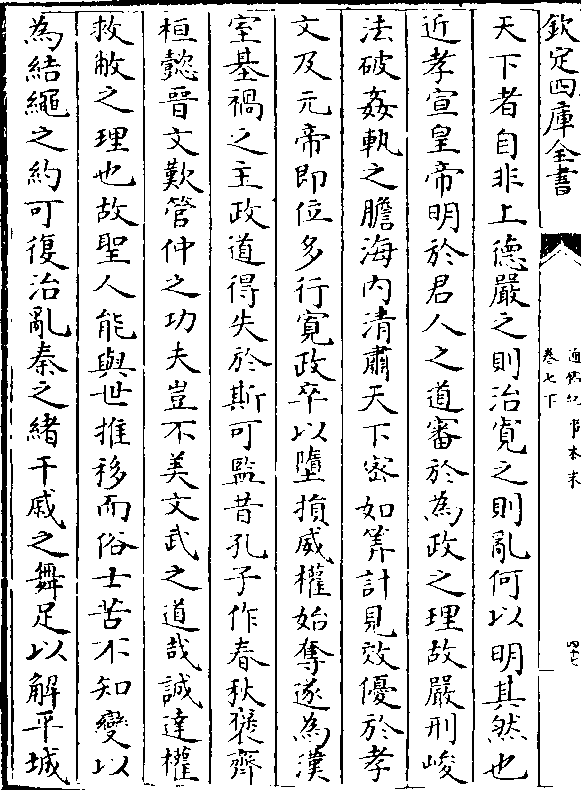 欽定四庫全書
通鑑紀事本末
卷七下
天下者自非上德嚴之則治寛之則亂何以明其然也
近孝宣皇帝明於君人之道審於為政之理故嚴刑峻
法破姦軌之膽海内清肅天下宻如筭計見效優於孝
文及元帝即位多行寛政卒以墮損威權始奪遂為漢
室基禍之主政道得失於斯可監昔孔子作春秋褒齊
桓懿晉文歎管仲之功夫豈不美文武之道哉誠達權
救敝之理也故聖人能與世推移而俗士苦不知變以
為結繩之約可復治亂秦之緒干戚之舞足以解平城